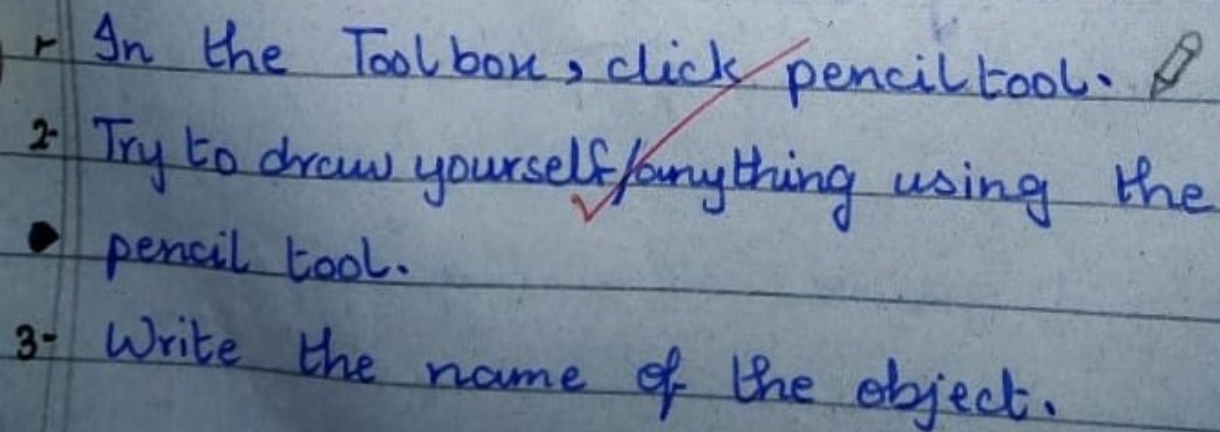 1- In the Toolbox, click pencil tool.
2- Try to draw yourself/anything using the
pencil tool.
3- Write the name of the object.